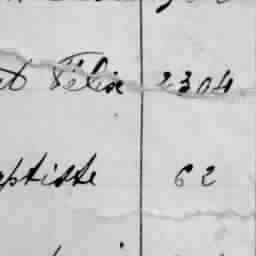 et Félix 2304
aptiste 62